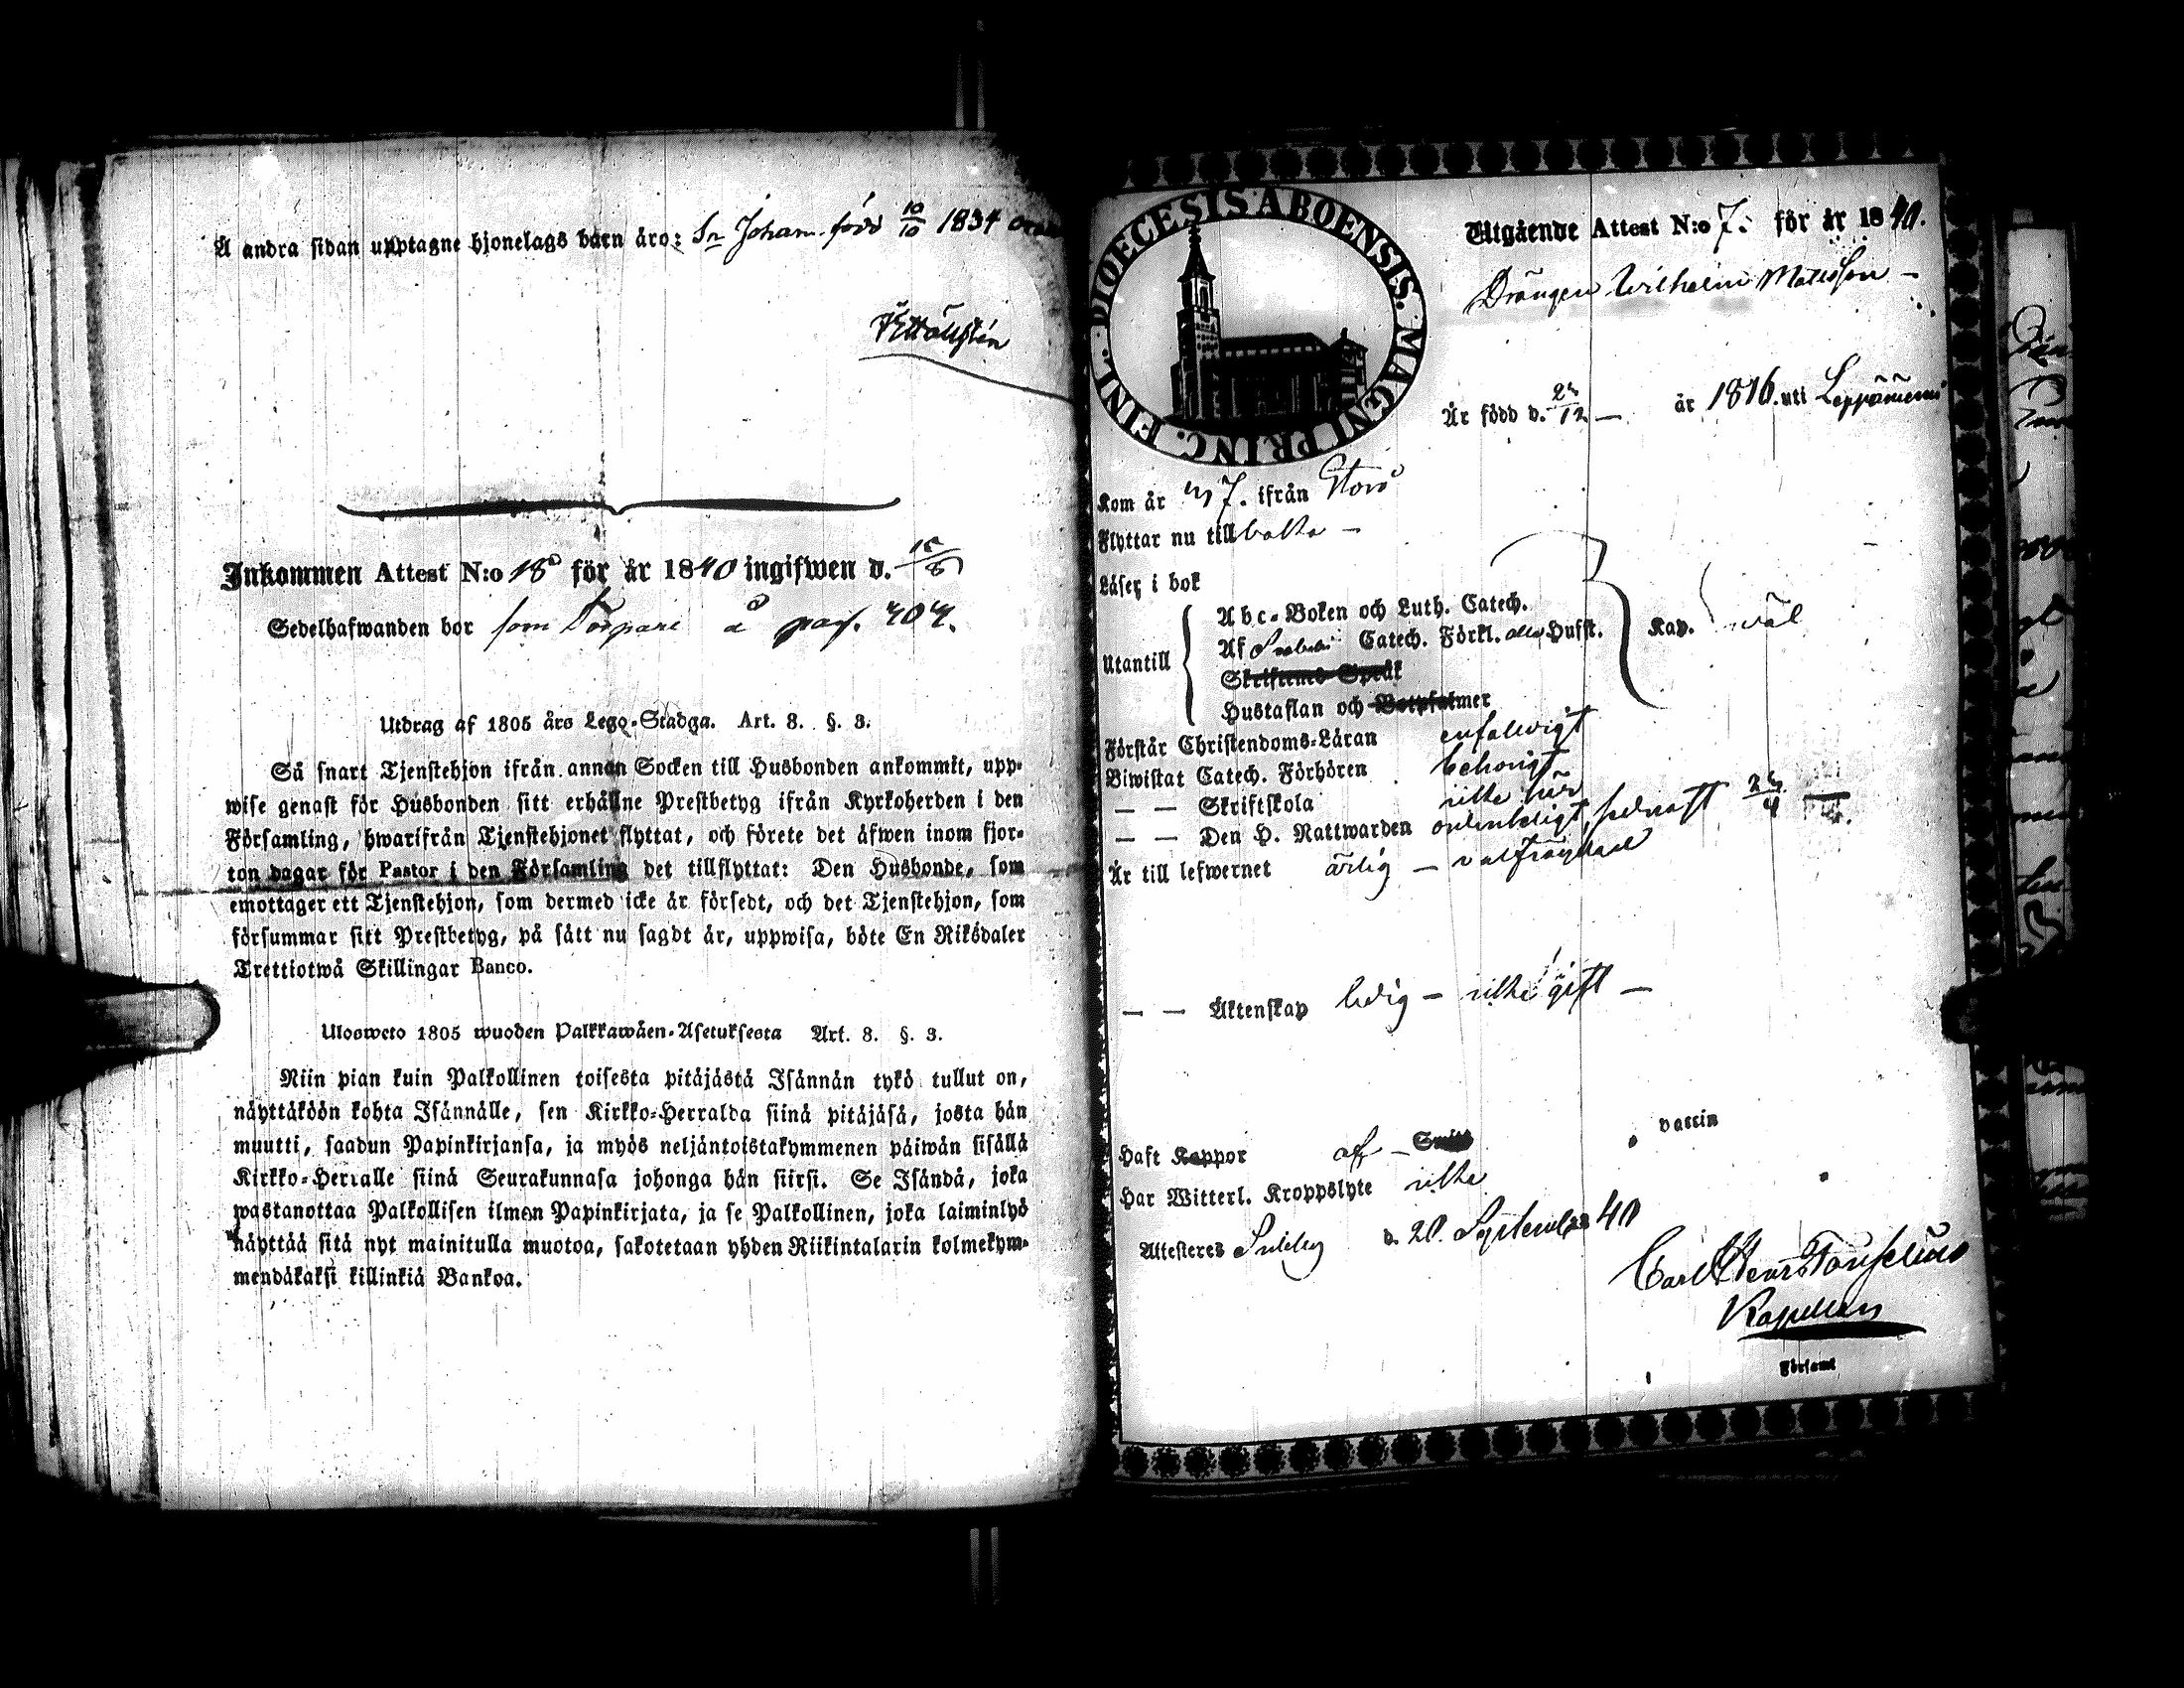 Å andra sidan upptagne hjonelags barn äro: Sn Johan född 10/10 1834
Inkommen Attest N:o 18 för år 1840 ingifwen d.
Sedelhafwanden bor som Torpare å pag. 404.
Utdrag af 1805 års Lego-Stadga. Art. 8. §. 3.
Så snart Tjenstehjon ifrån annan Socken till Husbonden ankommit, upp-
wise genast för Husbonden sitt erhållne Prestbetyg ifrån Kyrkoherden i den
Församling, hwarifrån Tjenstehjonet flyttat, och förete det äfwen inom fjor-
ton dagar för Pastor i den Församling det tillflyttat: Den Husbonde, som
emottager ett Tjenstehjon, som dermed icke är försedt, och det Tjenstehjon, som
försummar sitt Prestbetyg, på sätt nu sagdt är, uppwisa, böte En Riksdaler
Trettiotwå Skillingar Banco.
Ulosweto 1805 wuoden Palkkawäen-Asetuksesta Art. 8. §. 3.
Niin pian kuin Palkollinen toisesta pitäjästä Isännän tykö tullut on,
näyttäköön kohta Isännälle, sen Kirkko-Herralda siinä pitäjäsä, josta hän
muutti, saadun Papinkirjansa, ja myös neljäntoistakymmenen päiwän sisällä
Kirkko-Herralle siinä Seurakunnasa johonga hän siirsi. Se Isändä, joka
wastanottaa Palkollisen ilman Papinkirjata, ja se Palkollinen, joka laiminlyö
näyttää sitä nyt mainitulla muotoa, sakotetaan yhden Riikintalarin kolmekym-
mendäkaksi killinkiä Bankoa.
FINL. DIOECESIS ABOENSIS. MAGNI PRINC.
Utgående Attest N:o 7. för år 1840.
Drängen Wilhelm Matsson –
Är född d. /12 – år 1816. uti
Kom år ifrån Storö
Flyttar nu till
Läser i bok
Utantill
Abc-Boken och Luth. Catech.
Af Catech. Förkl. Husst.
Skriftened Språk
Hustaflan och Botpsalmer
Kap. wäl
Förstår Christendoms-Läran enfaldigt
Biwistat Catech. Förhören behörigt
— — Skriftskola icke här
— — Den H. Nattwarden ordentligt, senast
Är till lefwernet ärlig – välfräjdad
— — Äktenskap ledig – icke gift –
Haft Koppor af – Smitt vaccin
Har Witterl. Kroppslyte icke
Attesteres d. 20. September 40
Carl Henr.
Kapellan
Församl